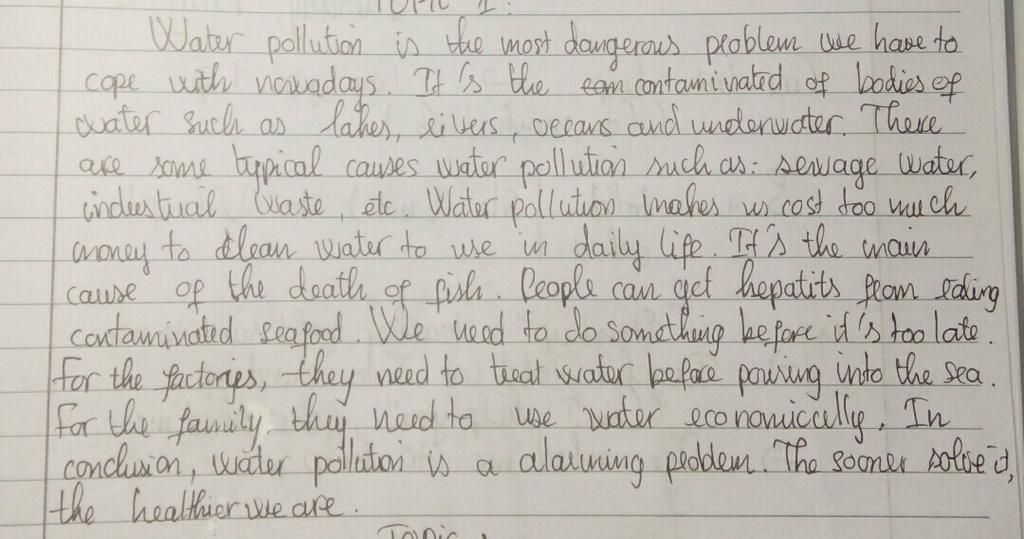 TOPIC 1:
Water pollution is the most dangerous problem we have to
cope with nowadays. It's the com contaminated of bodies of
water such as lakes, rivers, oceans and underwater. There
are some typical causes water pollution such as: sewage water,
industrual waste, etc. Water pollution makes us cost too much
money to clean water to use in daily life. It's the main
cause of the death of fish. People can get hepatits from eating
contaminated seafood. We need to do something before it's too late.
For the factories, they need to treat water before pouring into the sea.
For the family, they need to use water economically. In
conclusion, water pollution is a alarming problem. The sooner solve it,
the healthier we are.
Topic